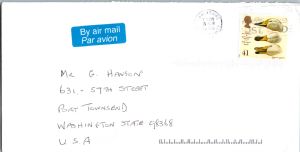 By air mail
Par avion
41
Mr G. Hanson
631 - 57th Street
Port Townsend
Washington State 98368
U.S.A